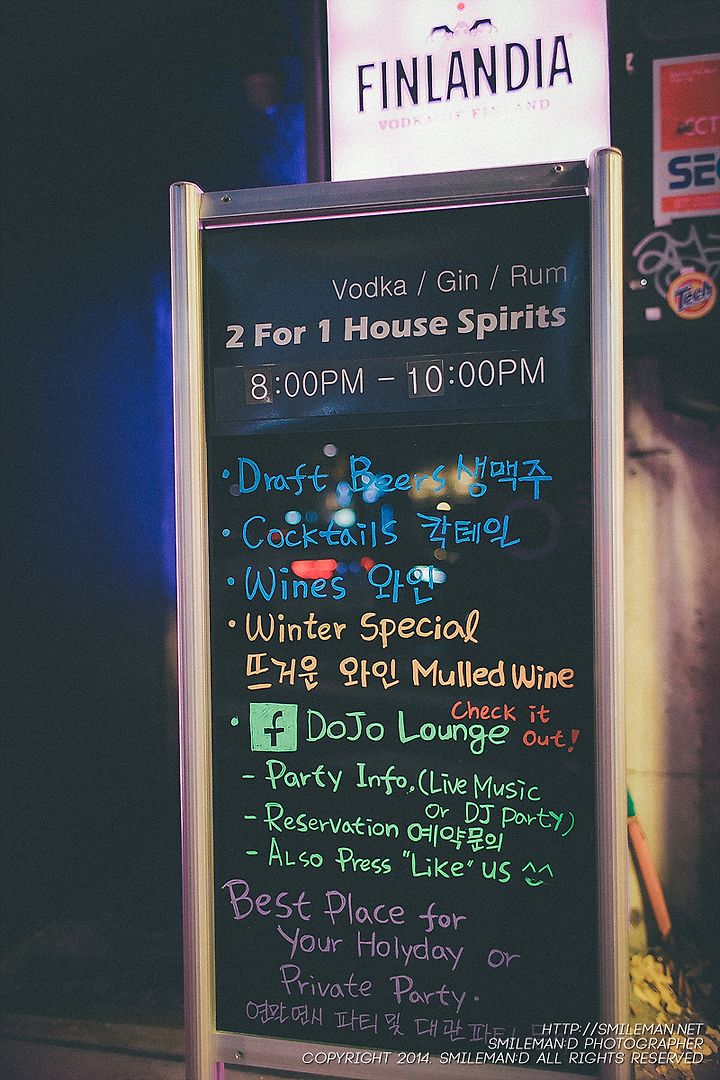 FINLANDIA
VODKA OF FINLAND
SEC
Tech
Vodka / Gin / Rum
2 For 1 House Spirits
8:00PM - 10:00PM
· Draft Beers 생맥주
· Cocktails 칵테일
· Wines 와인
· Winter Special
뜨거운 와인 Mulled Wine
· f DoJo Lounge Check it Out!
- Party Info. (Live Music
or DJ Party)
- Reservation 예약문의
- Also Press "Like" us ^^
Best Place for
Your Holyday or
Private Party.
연말연시 파티 및 대관 파티
HTTP://SMILEMAN.NET
SMILEMAN:D PHOTOGRAPHER
COPYRIGHT 2014. SMILEMAN:D ALL RIGHTS RESERVED